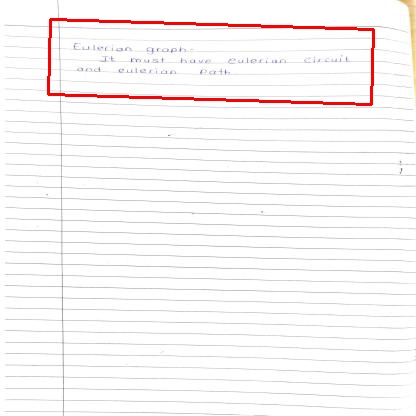 Eulerian graph-
It must have eulerian circuit
and eulerian path